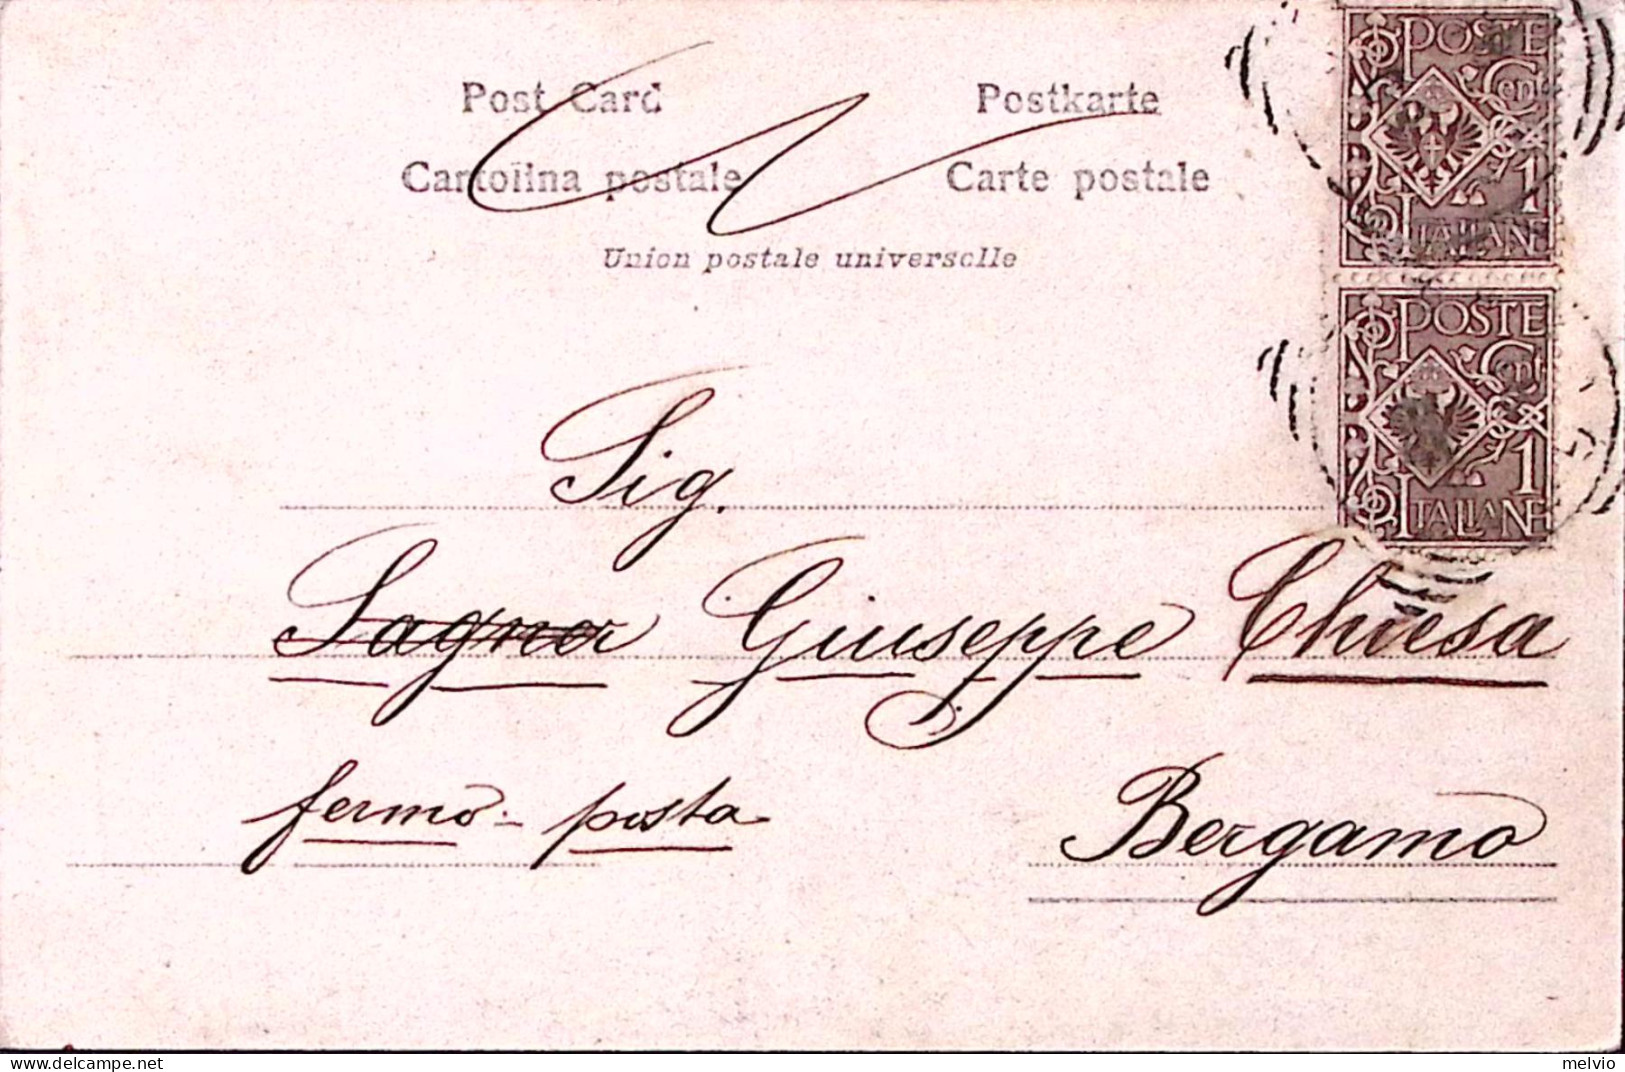 Post Card Postkarte
Cartolina postale Carte postale
Union postale universelle
POSTE
Cent
1
ITALIANE
POSTE
Cent
1
ITALIANE
Sig.
Giuseppe Chiesa
fermo-posta Bergamo
melvio